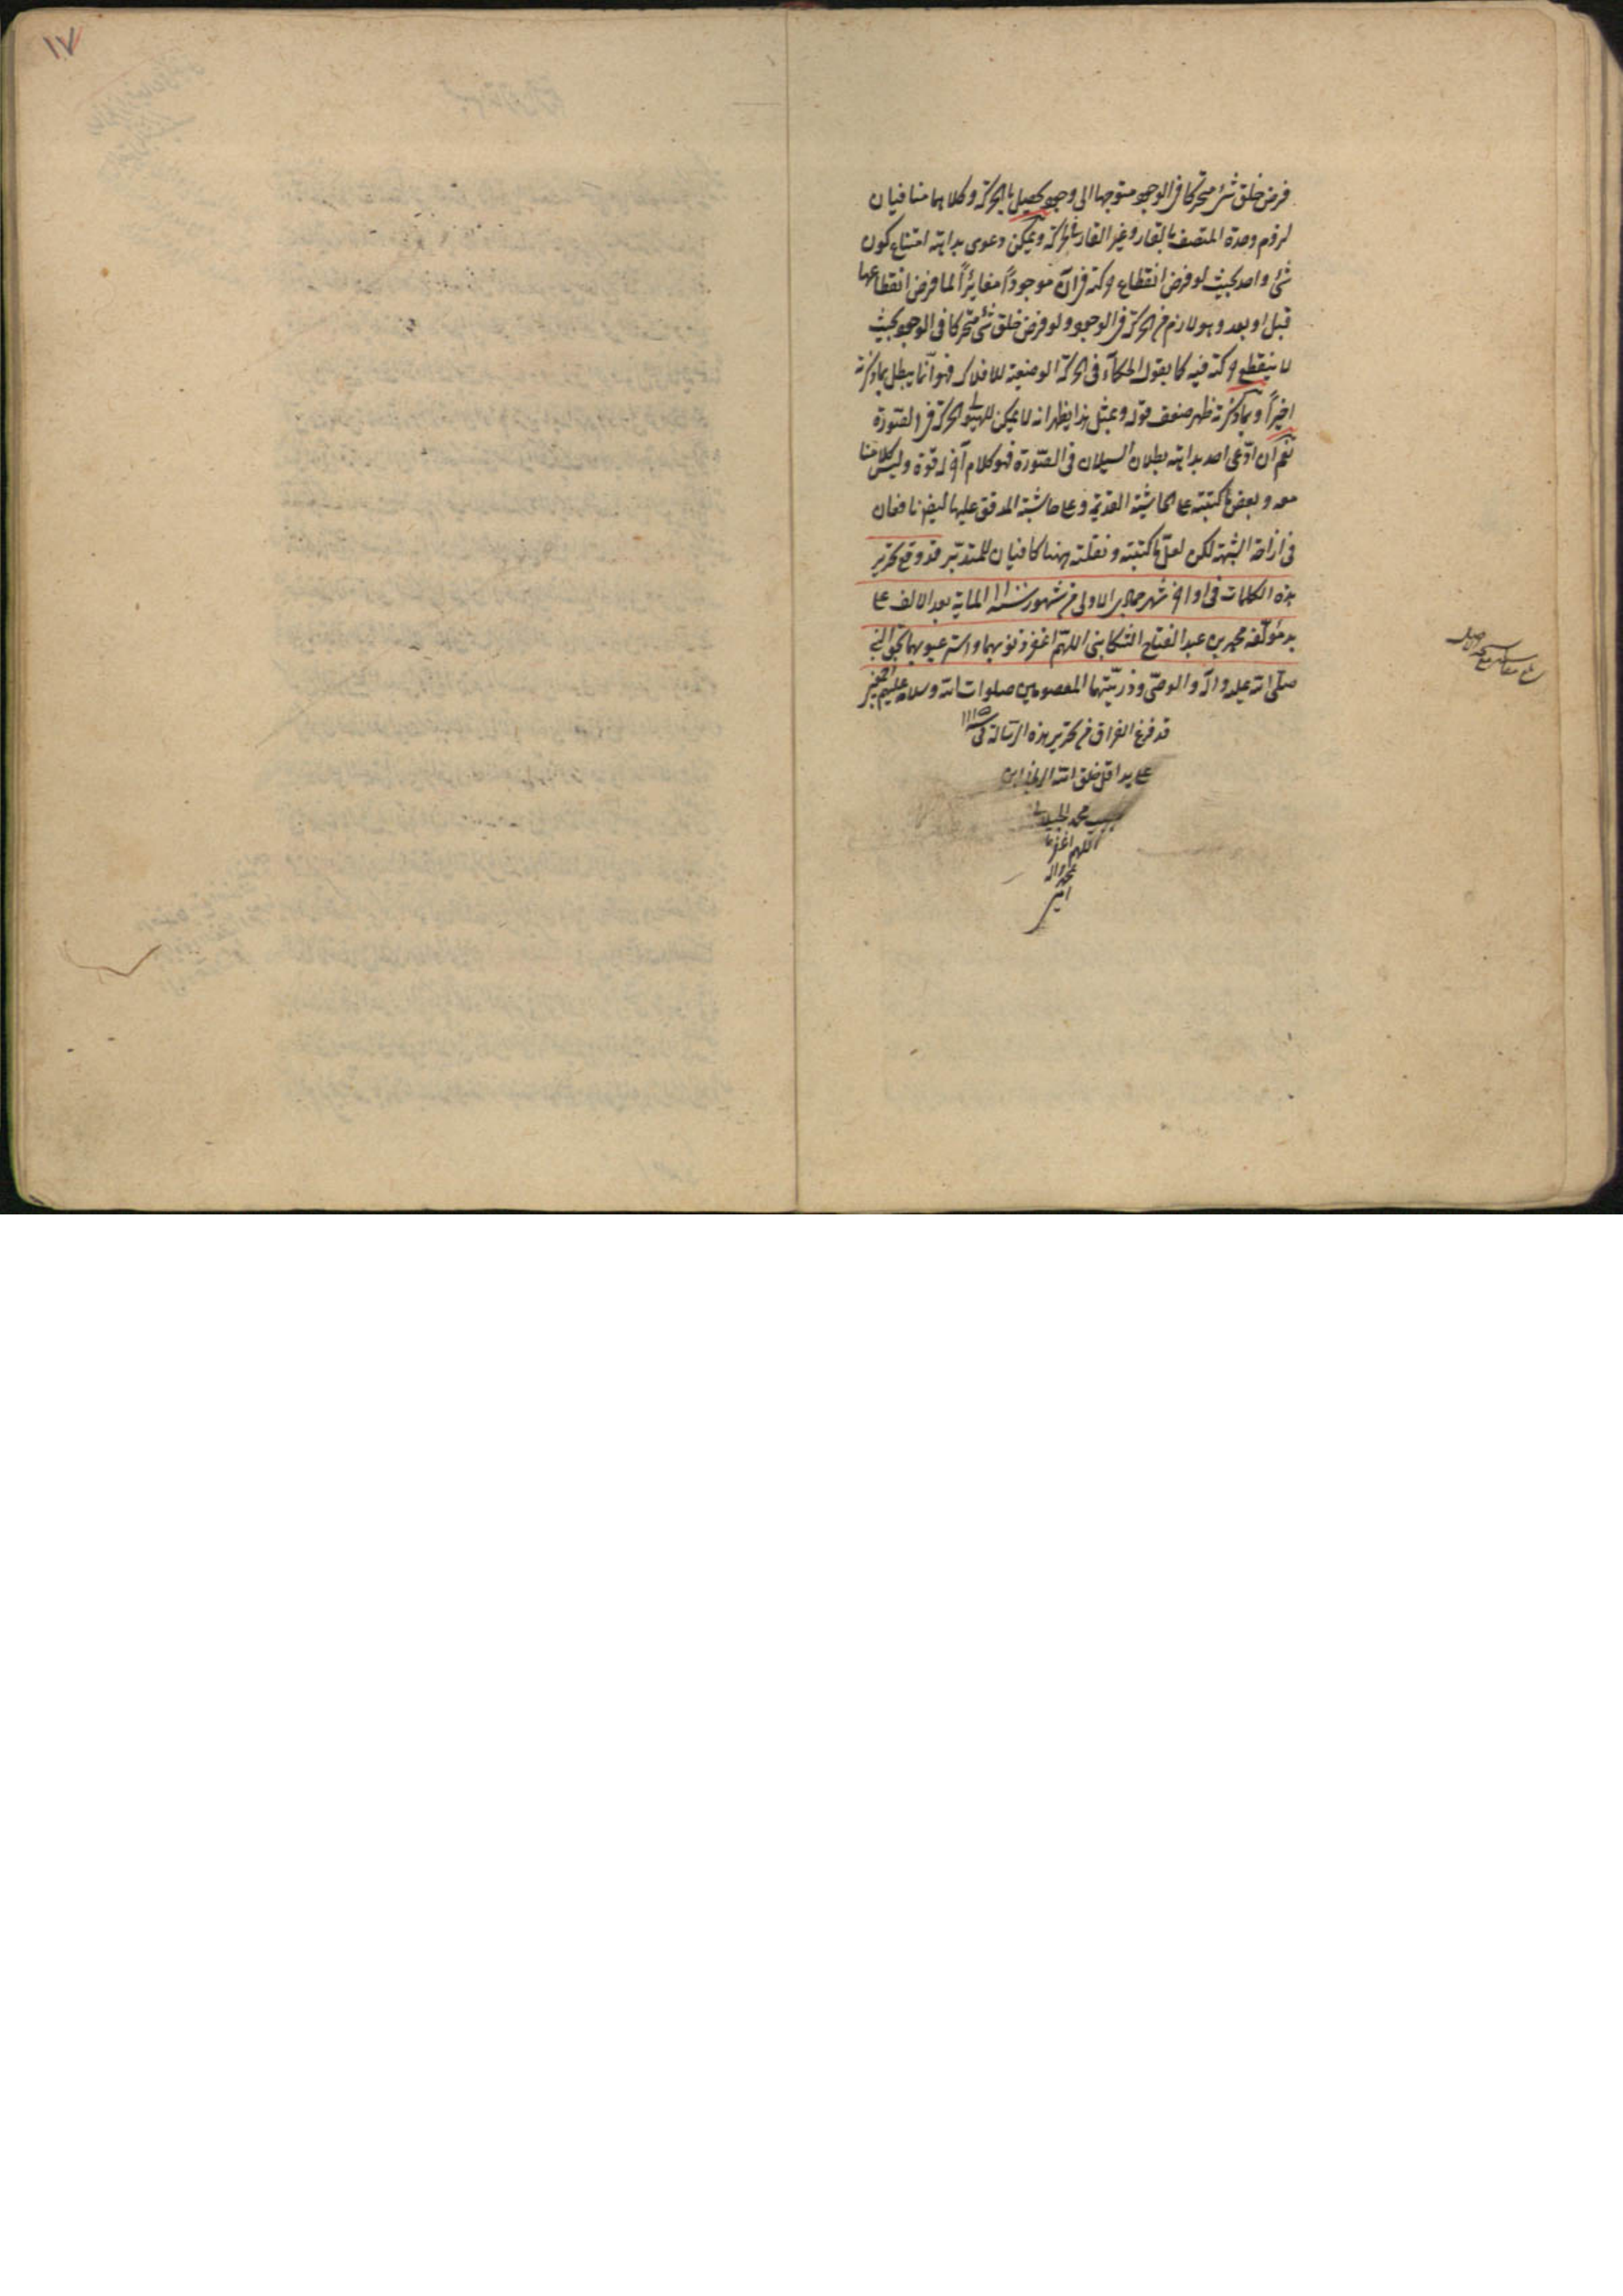 ۱۷
فرض خلق شئ متحركا فى الوجود متوجها الى وجود يحصل بالحركة وكلاهما منافيان
لزوم وحدة المتصف بالقار وغير القار بالحركة ويمكن دعوى بداهة امتناع كون
شئ واحد بحيث لو فرض انقطاع حركته فى آن موجوداً مغايراً لما فرض انقطاعها
قبل او بعد وهو لازم من الحركة فى الوجود ولو فرض خلق شئ متحركا فى الوجود بحيث
لا ينقطع حركته فيه كما يقول الحكماء فى الحركة الوضعية للافلاك فهو انما يبطل بما ذكرته
اخيراً وبما ذكرته ظهر ضعف قوله وبمثل هذا يظهر انه لا يمكن للهيولى الحركة فى الصورة
نعم ان ادّعى احد بداهة بطلان السيلان فى الصورة فهو كلام آخر له قوة وليس كلامنا
معه وبعض ما كتبته على الحاشية القديمة وعلى حاشية المدقق عليها ايضا نافعان
فى ازاحة الشبهة لكن لعلّ ما كتبته ونقلته ههنا كافيان للمتدبّر قد وقع تحرير
هذه الكلمات فى اواخر شهر جمادى الاولى من شهور سنة المائة بعد الالف على
يد مؤلفه محمد بن عبد الفتاح التنكابنى اللهمّ اغفر ذنوبهما واستر عيوبهما بحق النبى
صلّى الله عليه وآله والوصىّ وذريّتهما المعصومين صلوات الله وسلامه عليهم اجمعين
قد فرغ الفراق من تحرير هذه الرسالة فى ۱۱۱۵
على يد اقل خلق الله
محمد
اللهم اغفر
بمحمد وآله
امين